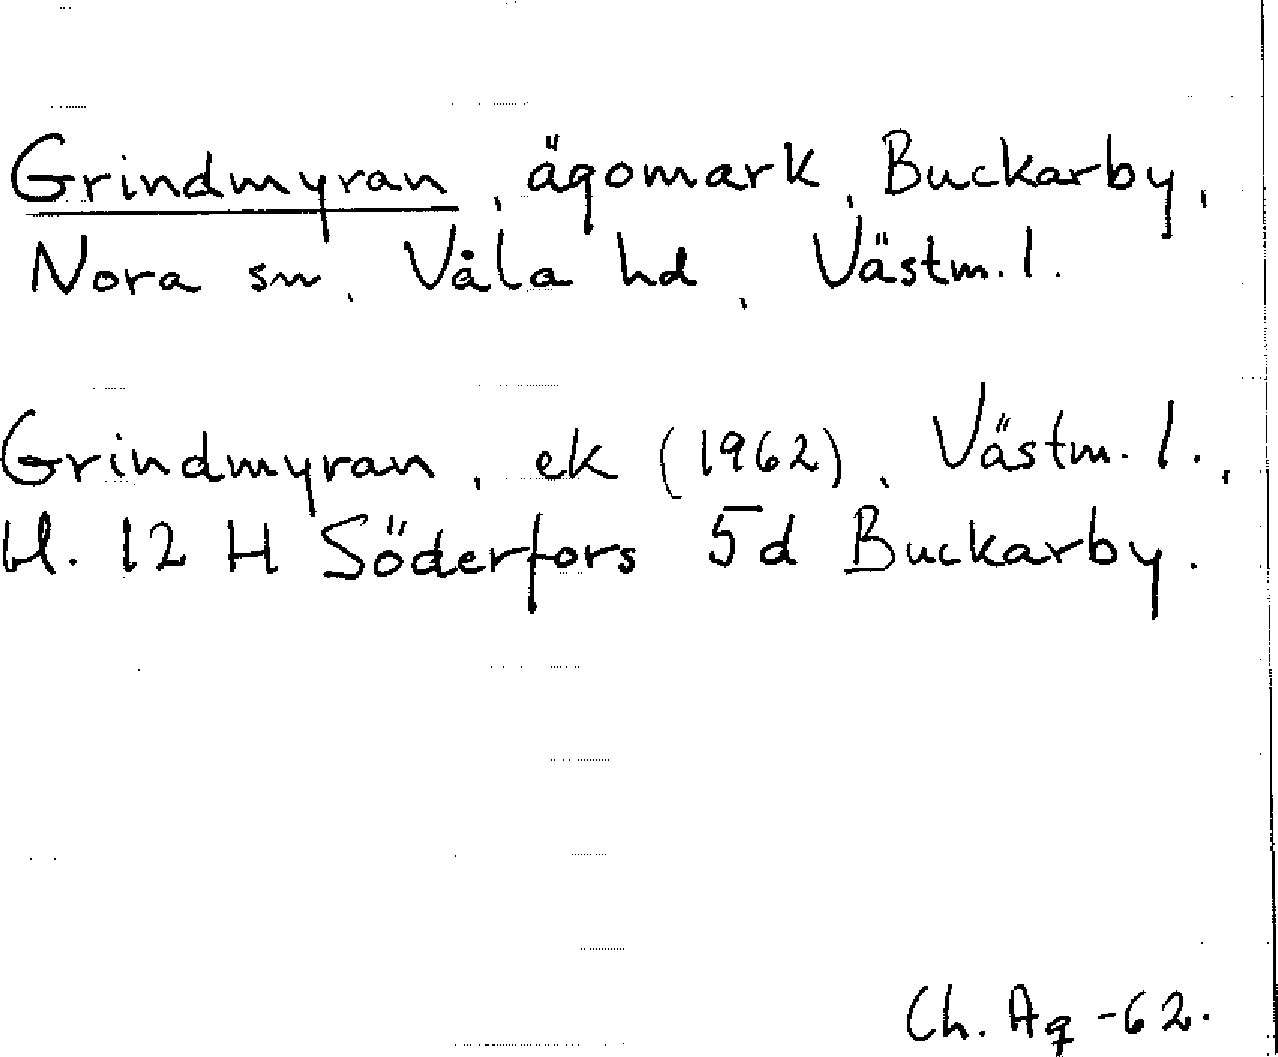 Grindmyran, ägomark, Buckarby,
Nora sn, Våla hd, Västm. l.
Grindmyran, ek (1962), Västm. l.,
bl. 12 H Söderfors 5d Buckarby.
Ch. Ag -62.